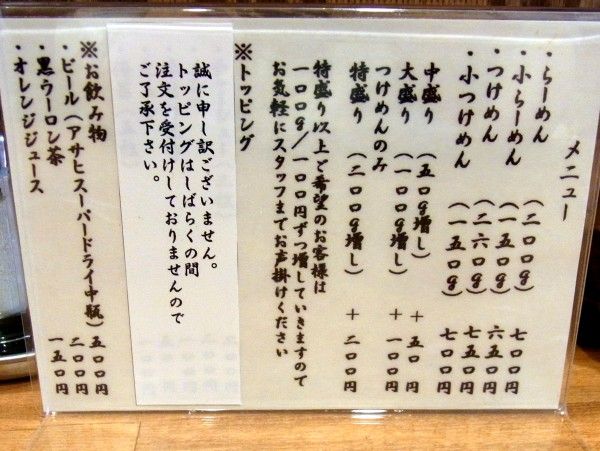 メニュー
・らーめん（二〇〇g）七〇〇円
・小らーめん（一五〇g）六五〇円
・つけめん（二六〇g）七五〇円
・小つけめん（一五〇g）七〇〇円
中盛り（五〇g増し）＋五〇円
大盛り（一〇〇g増し）＋一〇〇円
つけめんのみ
特盛り（二〇〇g増し）＋二〇〇円
特盛り以上ご希望のお客様は
一〇〇g/一〇〇円ずつ増していきますので
お気軽にスタッフまでお声掛けください
※トッピング
誠に申し訳ございません。
トッピングはしばらくの間
注文を受付けしておりませんので
ご了承下さい。
※お飲み物
・ビール（アサヒスーパードライ中瓶）五〇〇円
・黒ウーロン茶 二〇〇円
・オレンジジュース 一五〇円